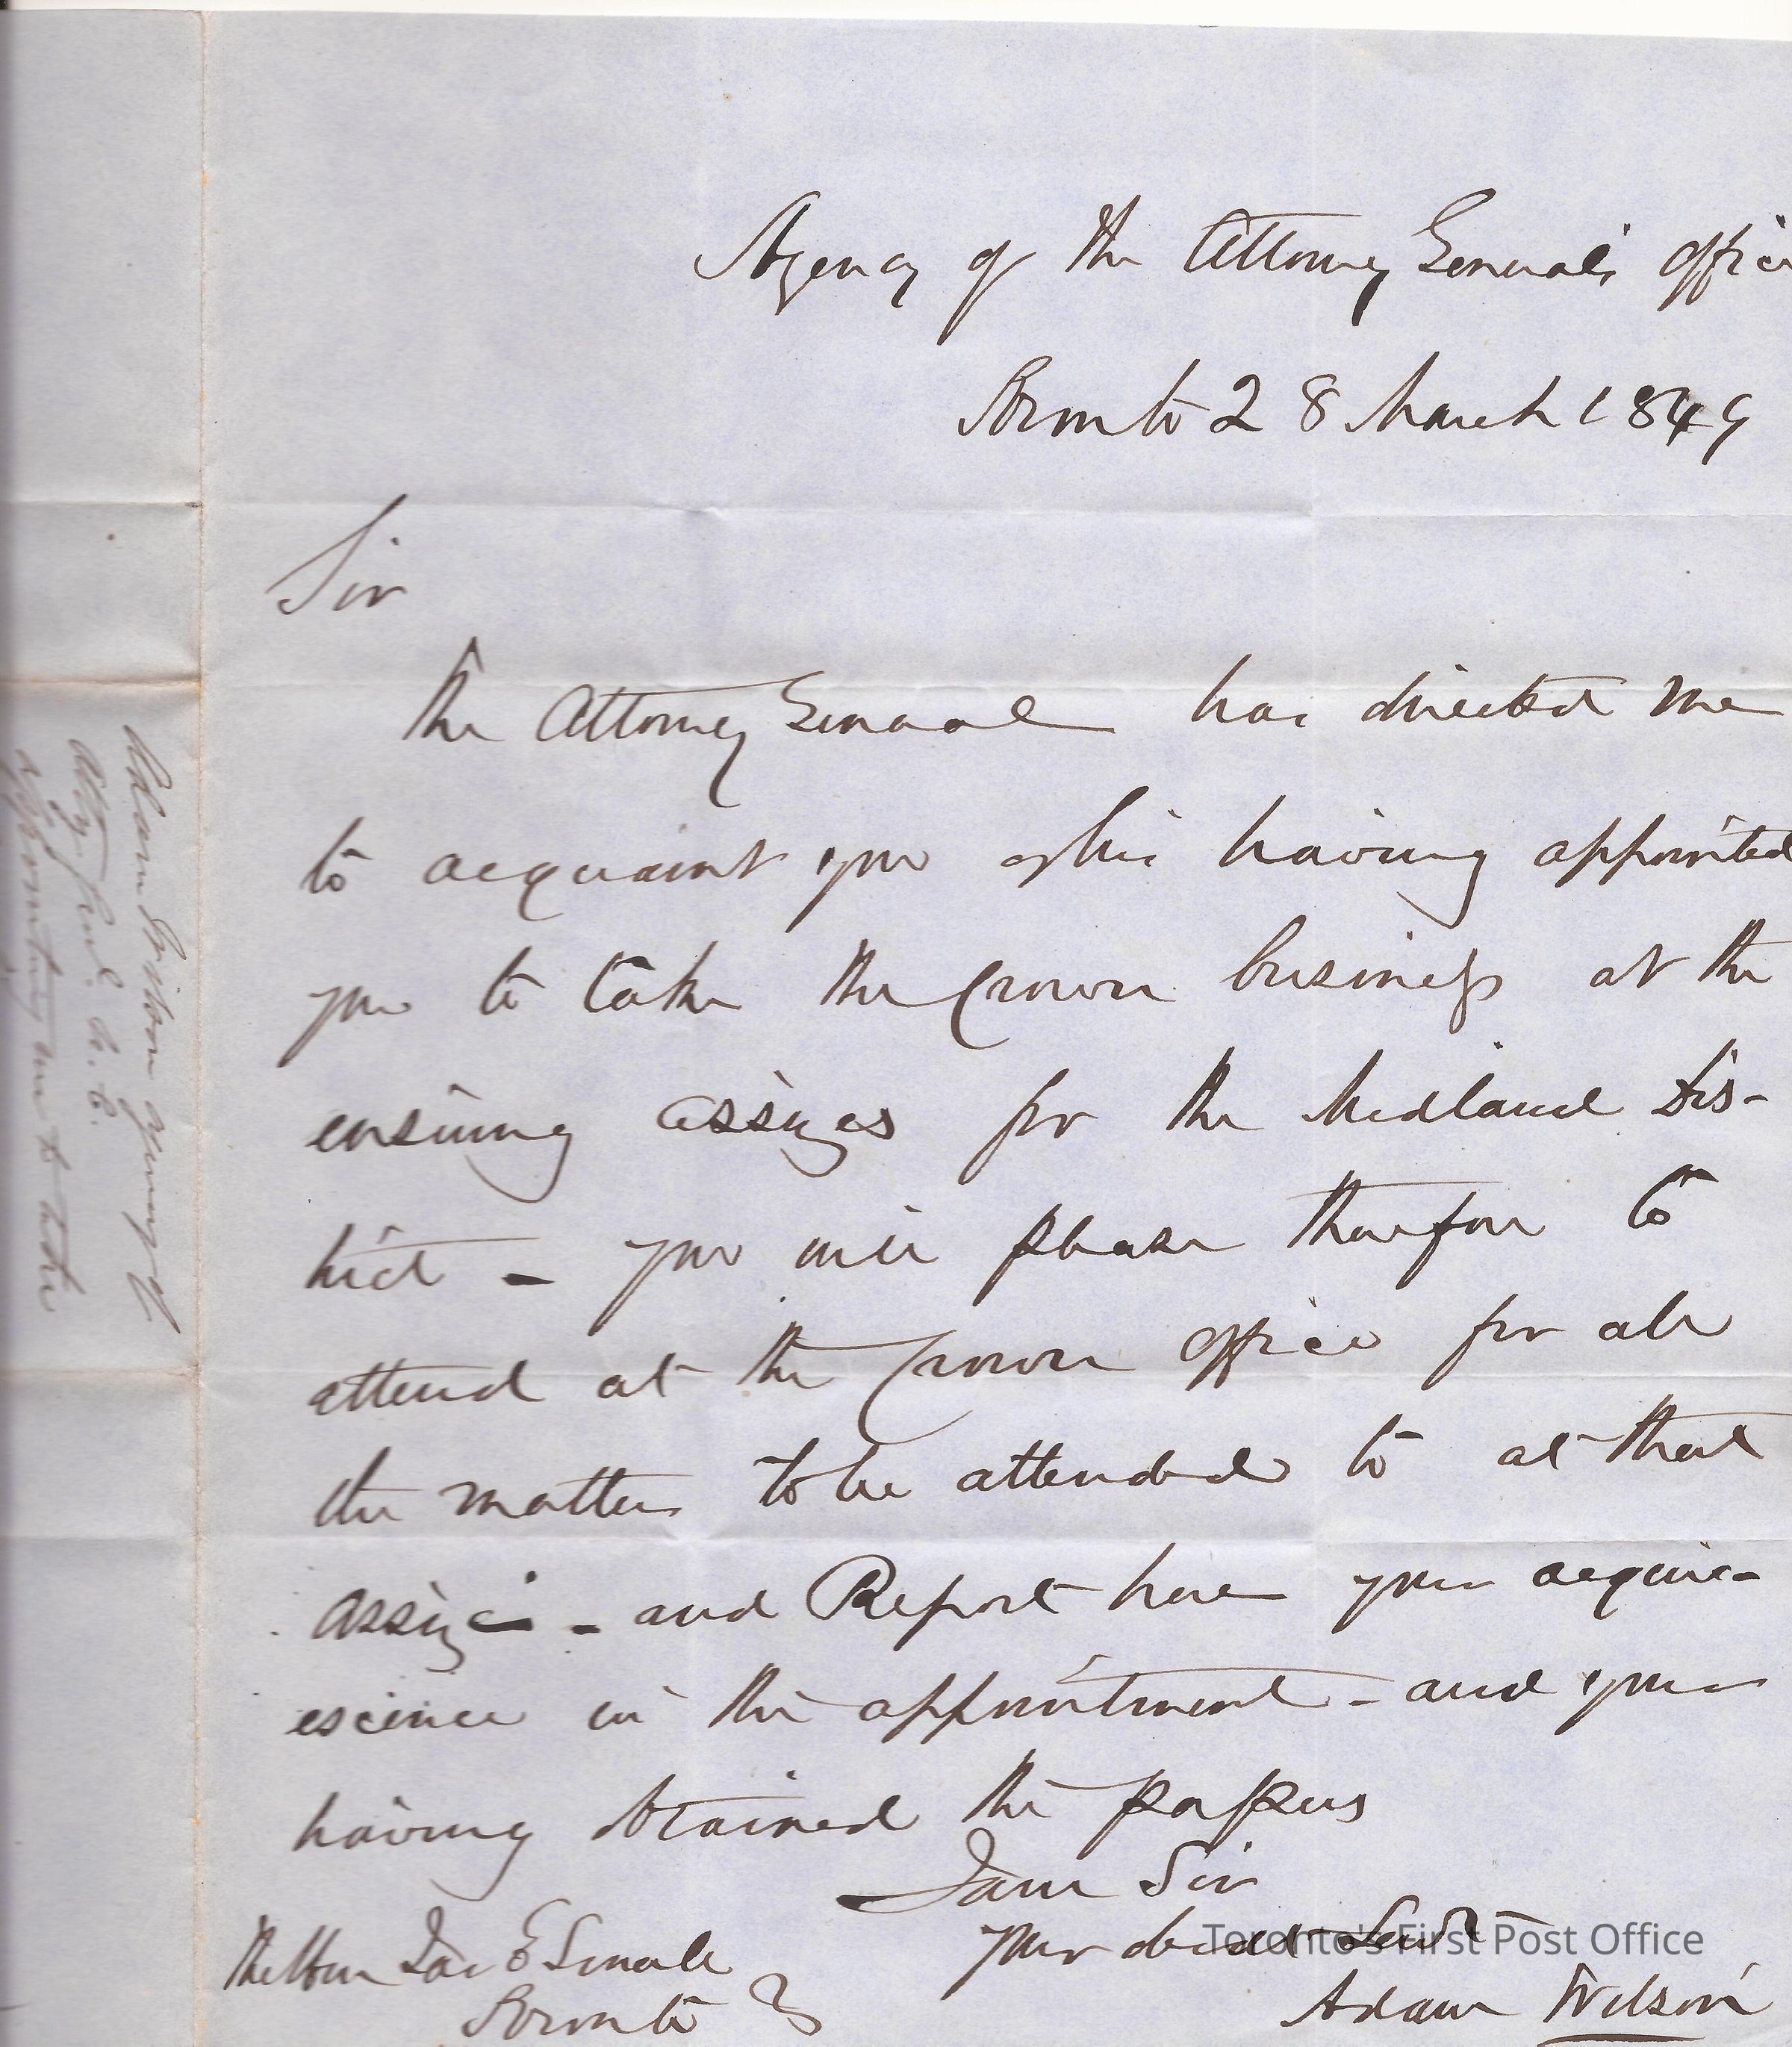 Agency of the Attorney General's Office
Toronto 28 March 1849
Sir
The Attorney General has directed me
to acquaint you of his having appointed
you to take the Crown business at the
ensuing assizes for the Midland Dis-
trict - you will please therefore to
attend at the Crown Office for all
the matters to be attended to at that
assizes - and Report here your acquie-
escence in the appointment - and your
having obtained the papers
I am Sir
your obedt Servt
Adam Wilson
The Hon Jas E Small
Toronto
Adam Wilson Agent of
Atty Genl. U. C.
appointing me to take
Toronto's First Post Office